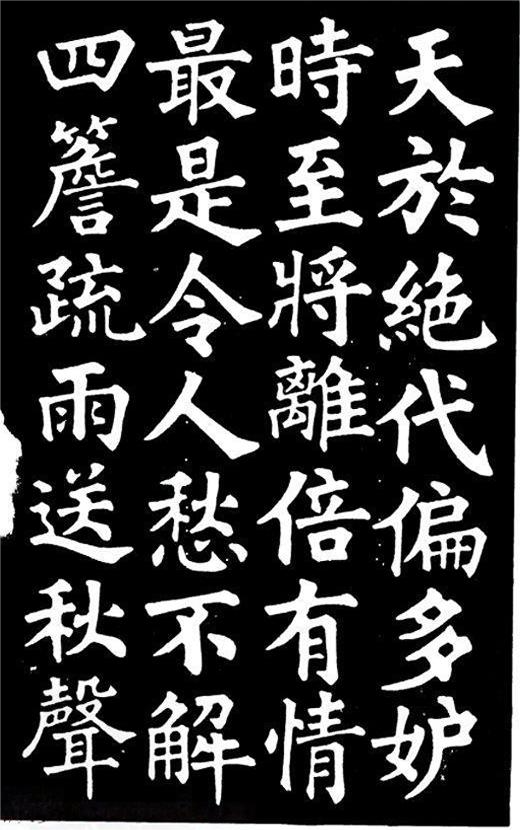 天於絕代偏多妒
時至將離倍有情
最是令人愁不解
四簷疏雨送秋聲